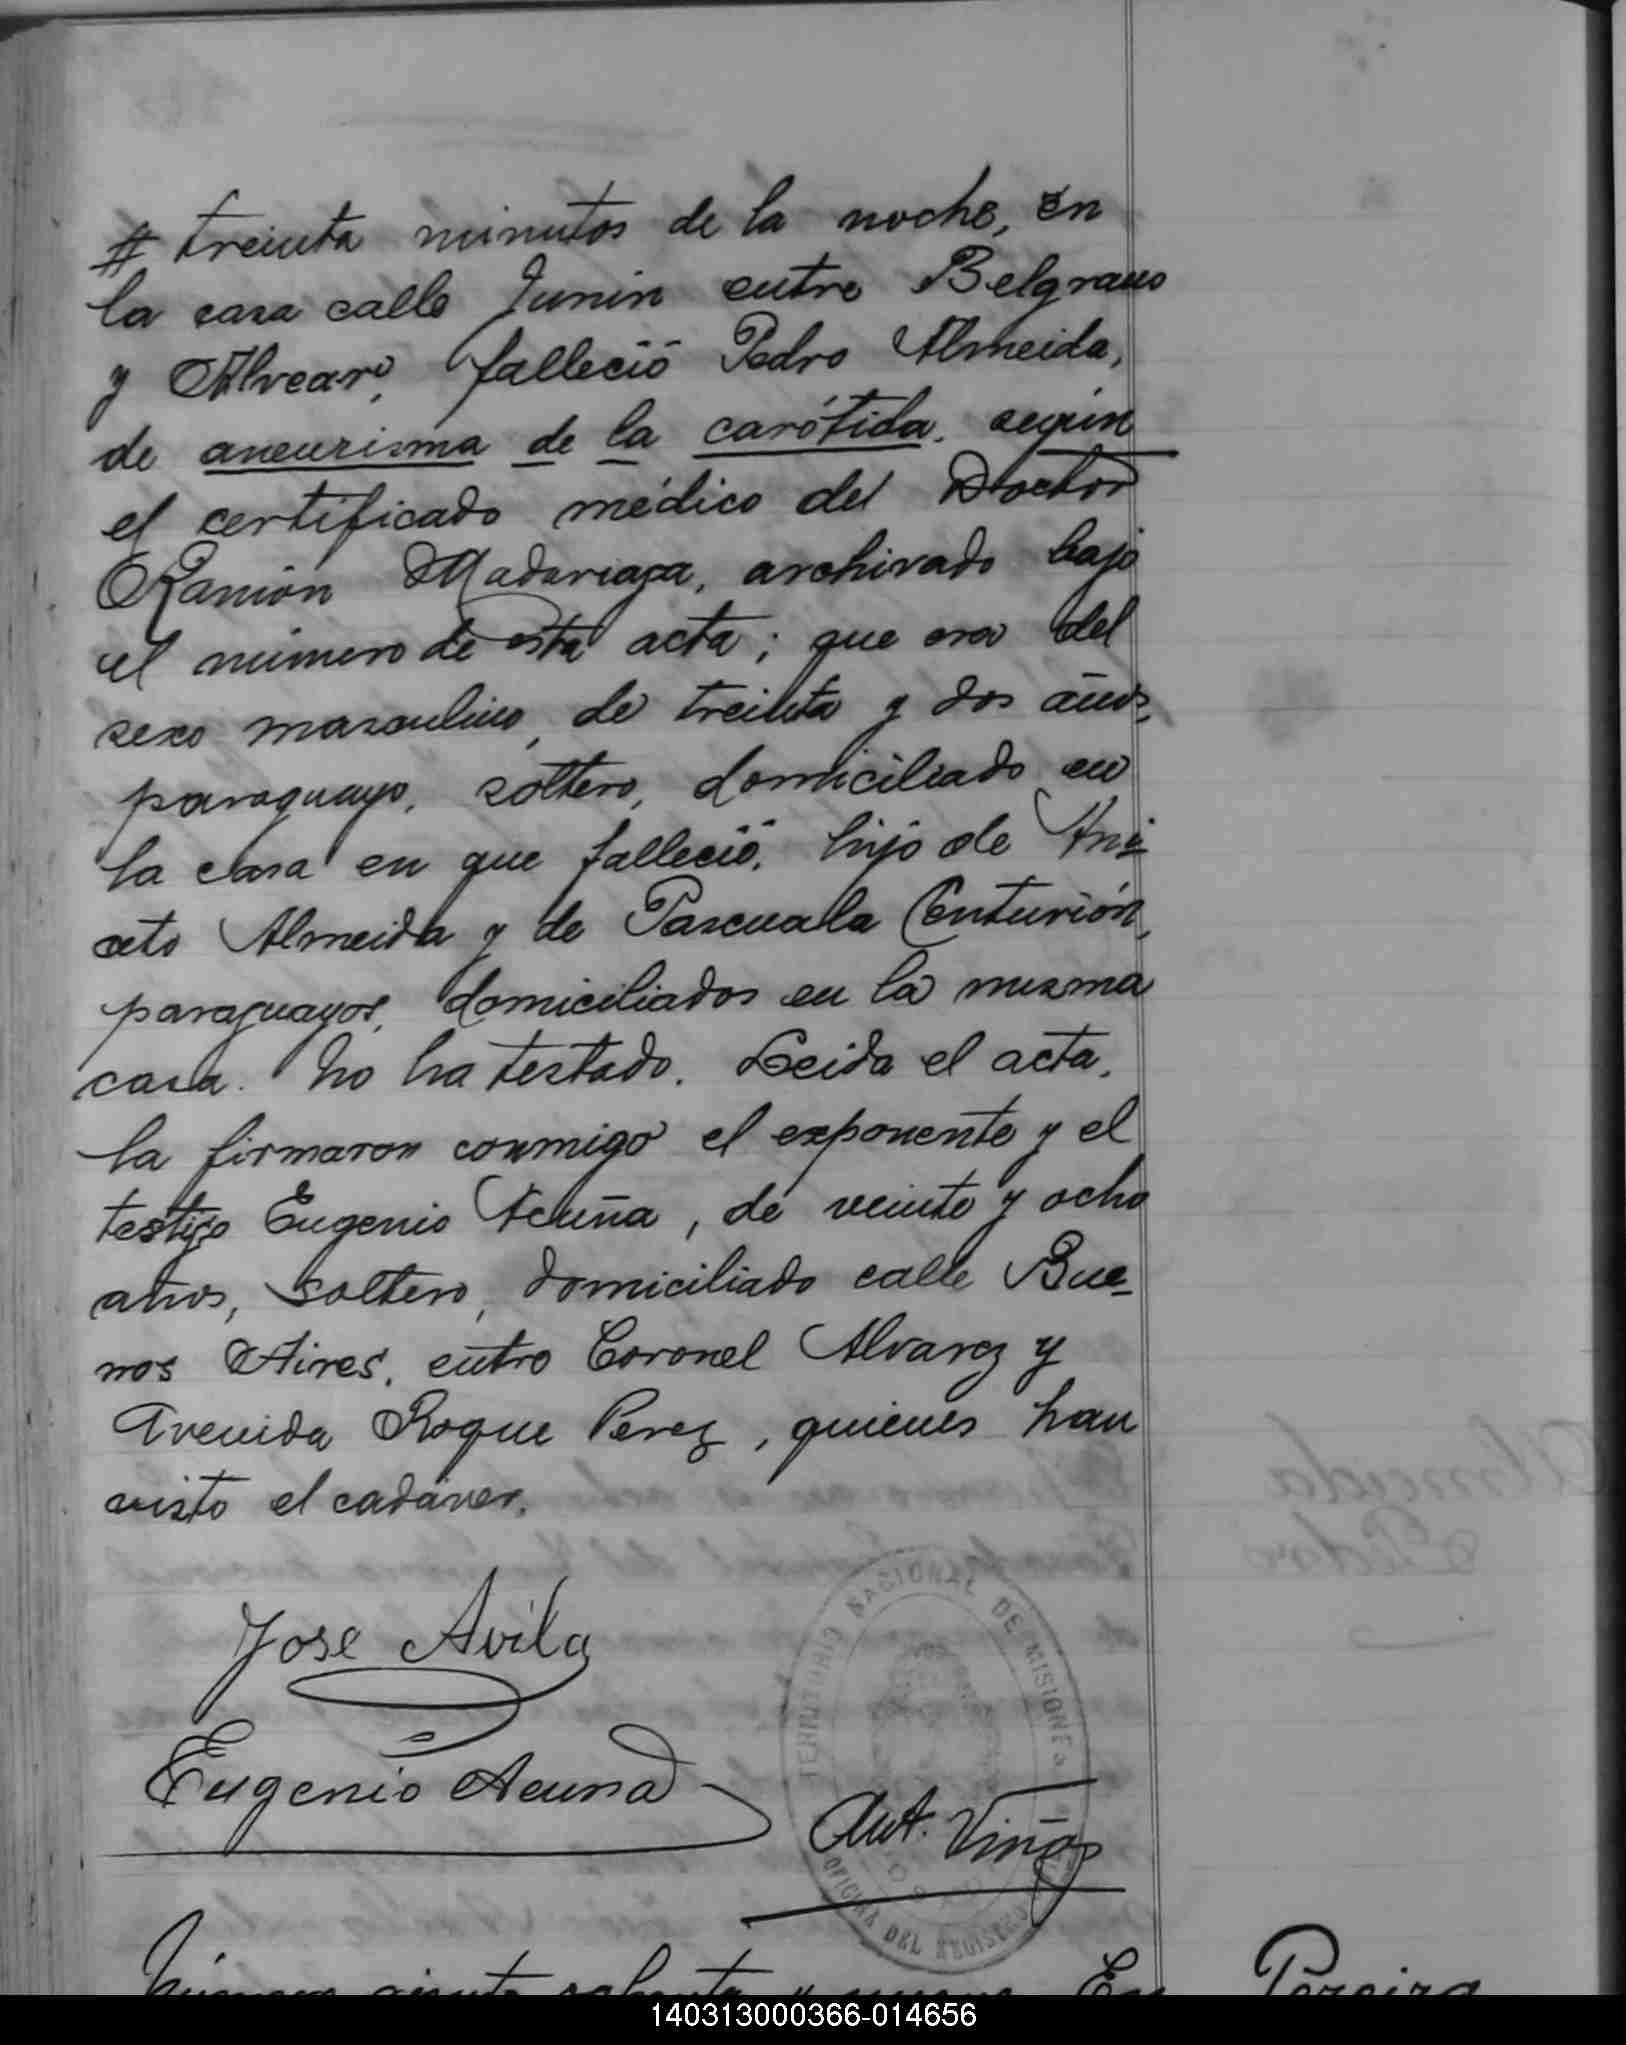 # treinta minutos de la noche, en
la casa calle Junin entre Belgrano
y Alvear, falleció Pedro Almeida,
de aneurisma de la carótida, según
el certificado médico del Doctor
Ramón Madariaga, archivado bajo
el número de esta acta; que era del
sexo masculino, de treinta y dos años,
paraguayo, soltero, domiciliado en
la casa en que falleció, hijo de Ani-
ceto Almeida y de Pascuala Centurión,
paraguayos, domiciliados en la misma
casa. No ha testado. Leida el acta,
la firmaron conmigo el exponente y el
testigo Eugenio Acuña, de veinte y ocho
años, soltero, domiciliado calle Bue-
nos Aires, entre Coronel Alvarez y
Avenida Roque Perez, quienes han
visto el cadáver.
Jose Avila
Eugenio Acuna
Ant. Viñas
TERRITORIO NACIONAL DE MISIONES
OFICINA DEL REGISTRO
Número ciento y nueve En
Pereira
Almeida
Pedro
140313000366-014656